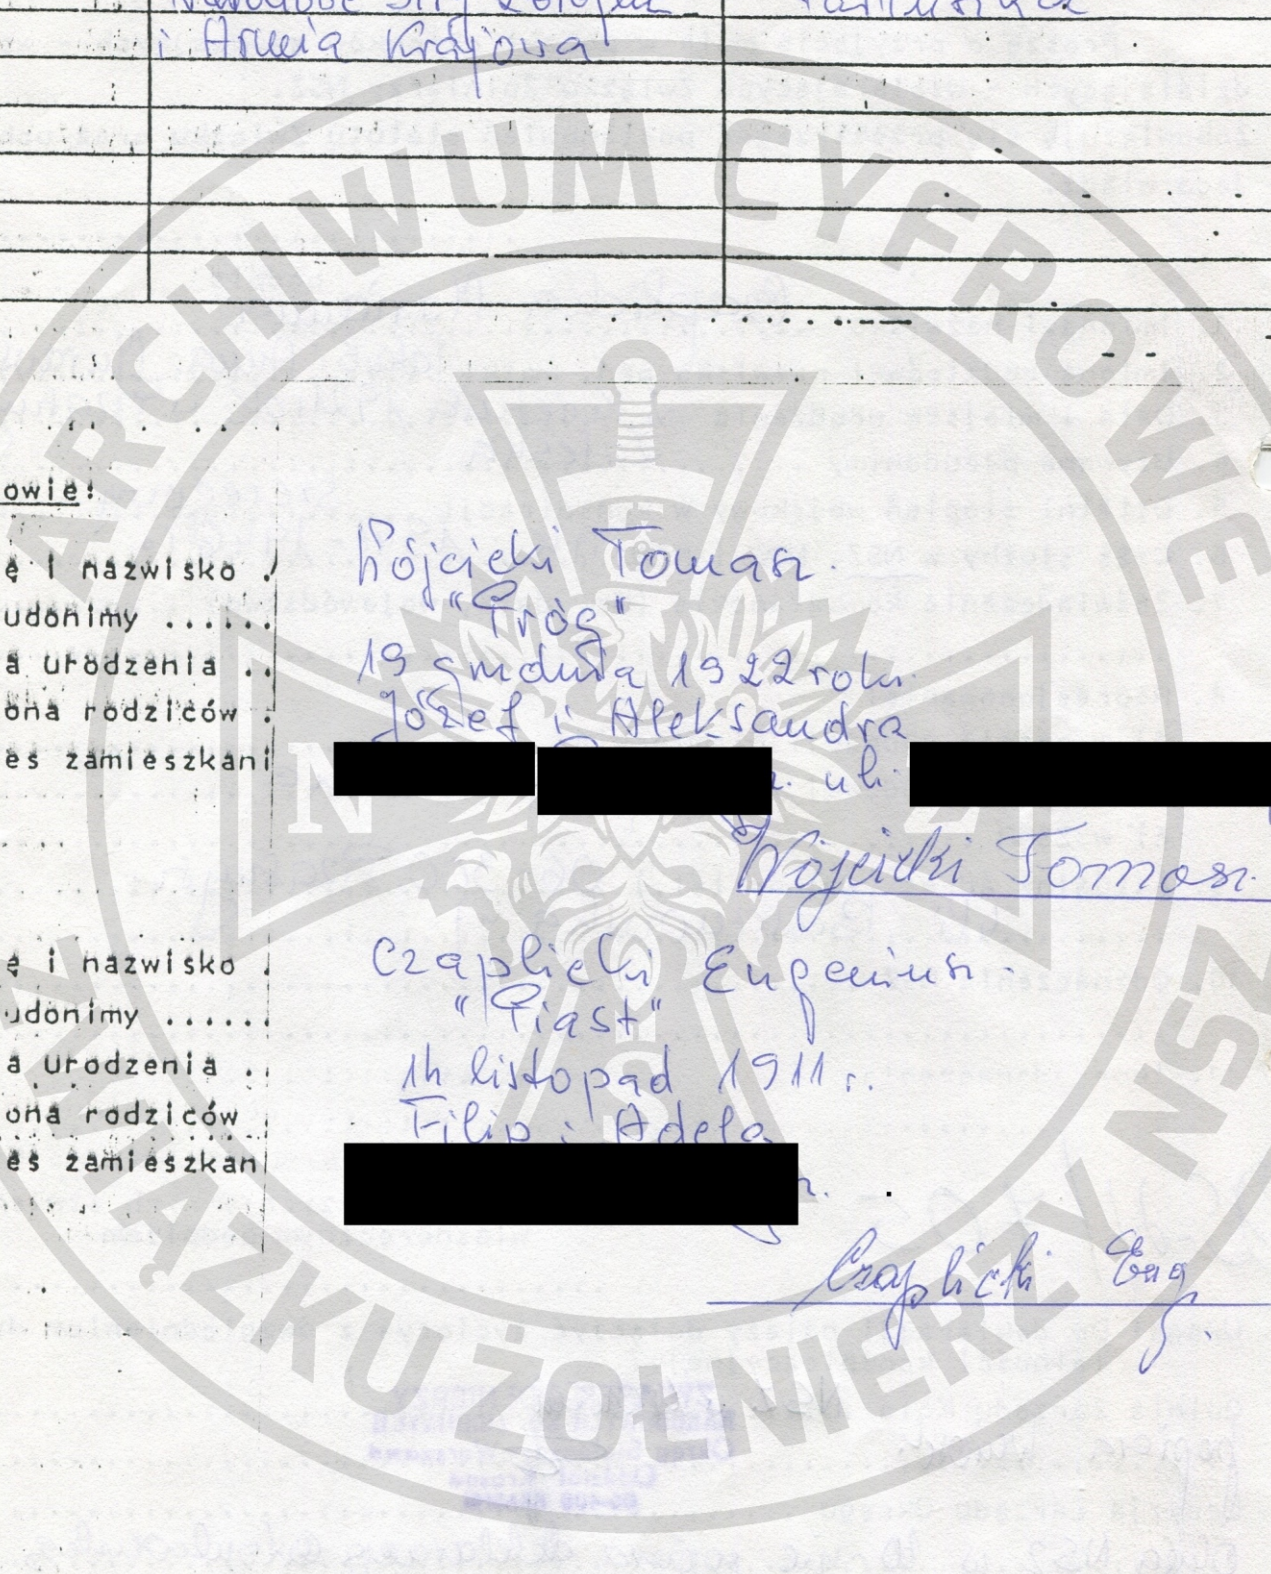 i Armia Krajowa
owie:
ę i nazwisko . Wójcicki Tomasz.
udonimy ...... "Próg"
a urodzenia .. 19 grudnia 1922 roku.
ona rodziców . Józef i Aleksandra
es zamieszkani ul.
Wójcicki Tomasz.
ę i nazwisko . Czaplicki Eugeniusz.
udonimy ...... "Piast"
a urodzenia .. 14 listopad 1911 r.
ona rodziców Filip i Adela
es zamieszkan
Czaplicki Eug.
ARCHIWUM CYFROWE
ZWIĄZKU ŻOŁNIERZY NSZ
N S Z